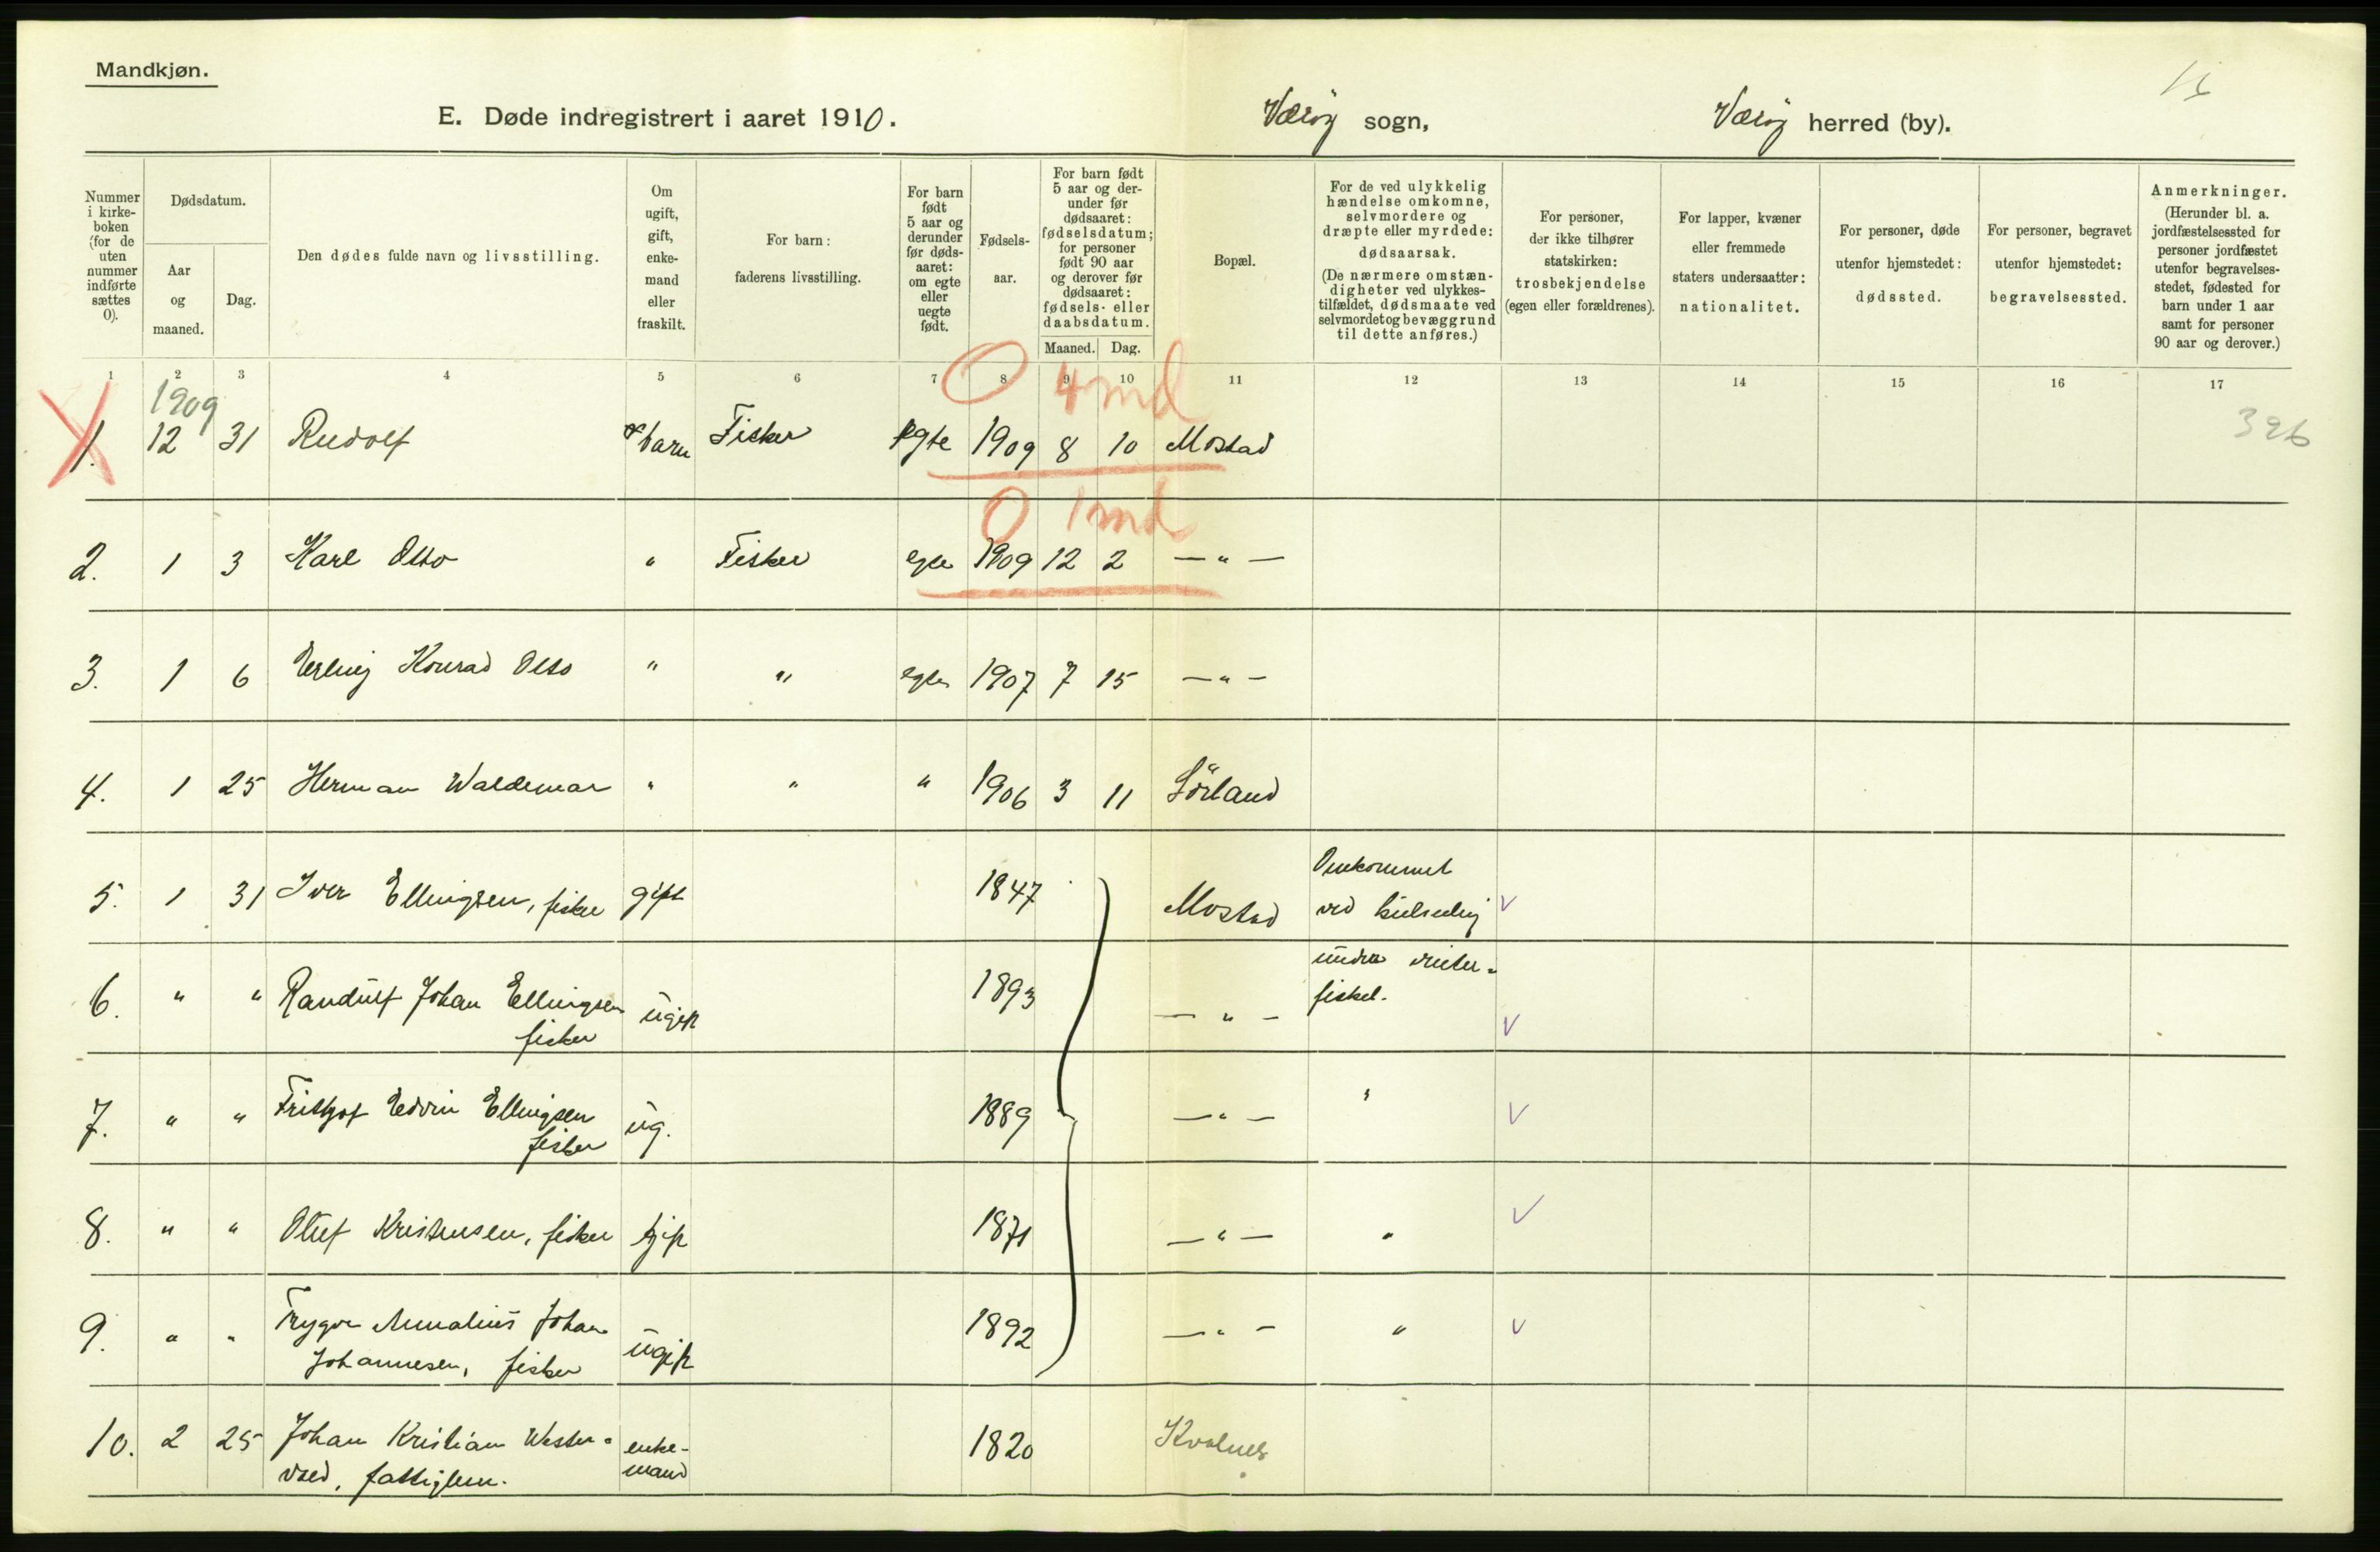 Mandkjøn.
E. Døde indregistrert i aaret 1910. Værøy sogn, Værøy herred (by).
Nummer i kirke- boken (for de uten nummer indførte sættes 0).
Dødsdatum.
Aar og maaned.
Dag.
Den dødes fulde navn og livsstilling.
Om ugift, gift, enke- mand eller fraskilt.
For barn: faderens livsstilling.
For barn født 5 aar og derunder før døds- aaret: om egte eller uegte født.
Fødsels- aar.
For barn født 5 aar og der- under før dødsaaret: fødselsdatum; for personer født 90 aar og derover før dødsaaret: fødsels- eller daabsdatum.
Maaned. Dag.
Bopæl.
For de ved ulykkelig hændelse omkomne, selvmordere og dræpte eller myrdede: dødsaarsak. (De nærmere omstæn- digheter ved ulykkes- tilfældet, dødsmaate ved selvmordet og bevæggrund til dette anføres.)
For personer, der ikke tilhører statskirken: trosbekjendelse (egen eller forældrenes).
For lapper, kvæner eller fremmede staters undersaatter: nationalitet.
For personer, døde utenfor hjemstedet: dødssted.
For personer, begravet utenfor hjemstedet: begravelsessted.
Anmerkninger. (Herunder bl. a. jordfæstelsessted for personer jordfæstet utenfor begravelses- stedet, fødested for barn under 1 aar samt for personer 90 aar og derover.)
1 2 3 4 5 6 7 8 9 10 11 12 13 14 15 16 17
1909 0 4 md
1. 12 31 Rudolf barn Fisker egte 1909 8 10 Mostad 326
0 1 md
2. 1 3 Karl Otto " Fisker egte 1909 12 2 — " —
3. 1 6 Erling Konrad Otto " " egte 1907 7 15 — " —
4. 1 25 Herman Waldemar " " " 1906 3 11 Sörland
5. 1 31 Iver Ellingsen, fisker gift 1847 Mostad Omkommet ved
6. " " Randulf Johan Ellingsen fisker ugift 1893 — " — under vinter- fisket.
7. " " Fritjof Edvin Ellingsen fisker ug. 1889 — " — "
8. " " Oluf Kristensen, fisker gift 1871 — " — "
9. " " Trygve Johan Johannesen, fisker ugift 1892 — " — "
10. 2 25 Johan Kristian Wester- enke- mand 1820 Kvalnes